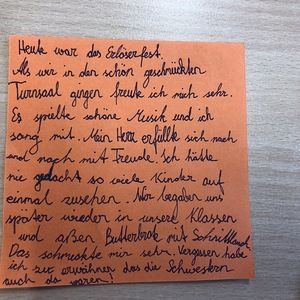 Heute war das Erlöserfest.
Als wir in den schön geschmückten
Turnsaal gingen freute ich mich sehr.
Es spielte schöne Musik und ich
sang mit. Mein Herr erfüllte sich nach
und nach mit Freude. Ich hätte
nie gedacht so viele Kinder auf
einmal zusehen. Wir begaben uns
später wieder in unsere Klassen
und aßen Butterbrote mit Schnittlauch.
Das schmeckte mir sehr. Vergessen habe
ich zu erwähnen das die Schwestern
auch da waren!